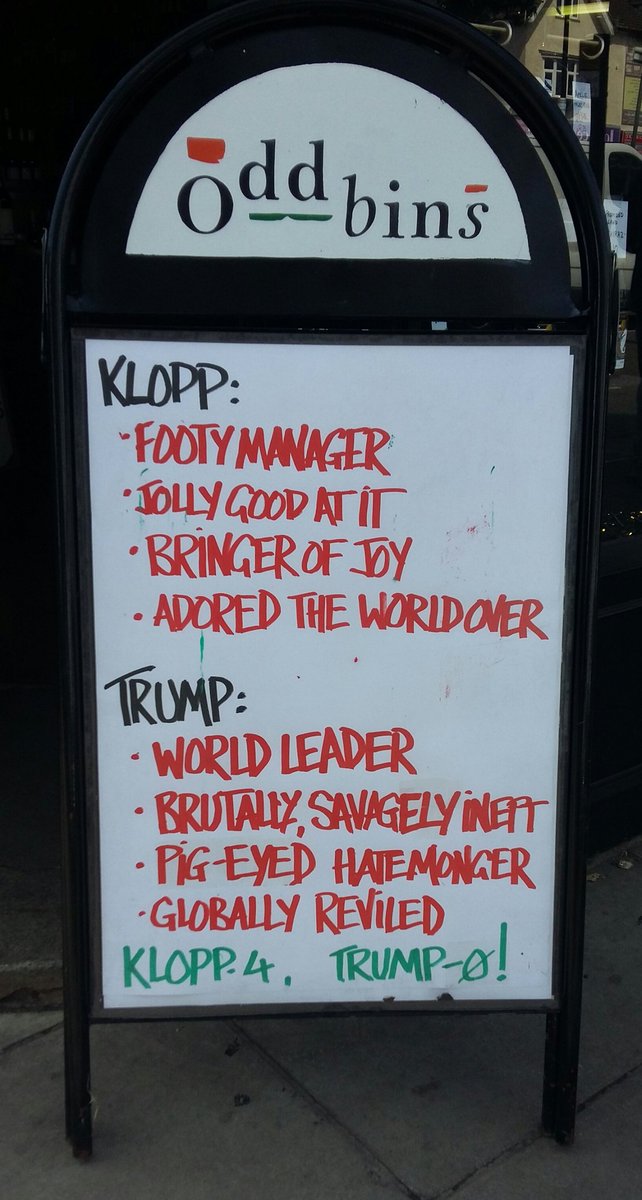 Oddbins
KLOPP:
· FOOTY MANAGER
· JOLLY GOOD AT IT
· BRINGER OF JOY
· ADORED THE WORLD OVER
TRUMP:
· WORLD LEADER
· BRUTALLY, SAVAGELY INEPT
· PIG-EYED HATEMONGER
· GLOBALLY REVILED
KLOPP-4, TRUMP-0!